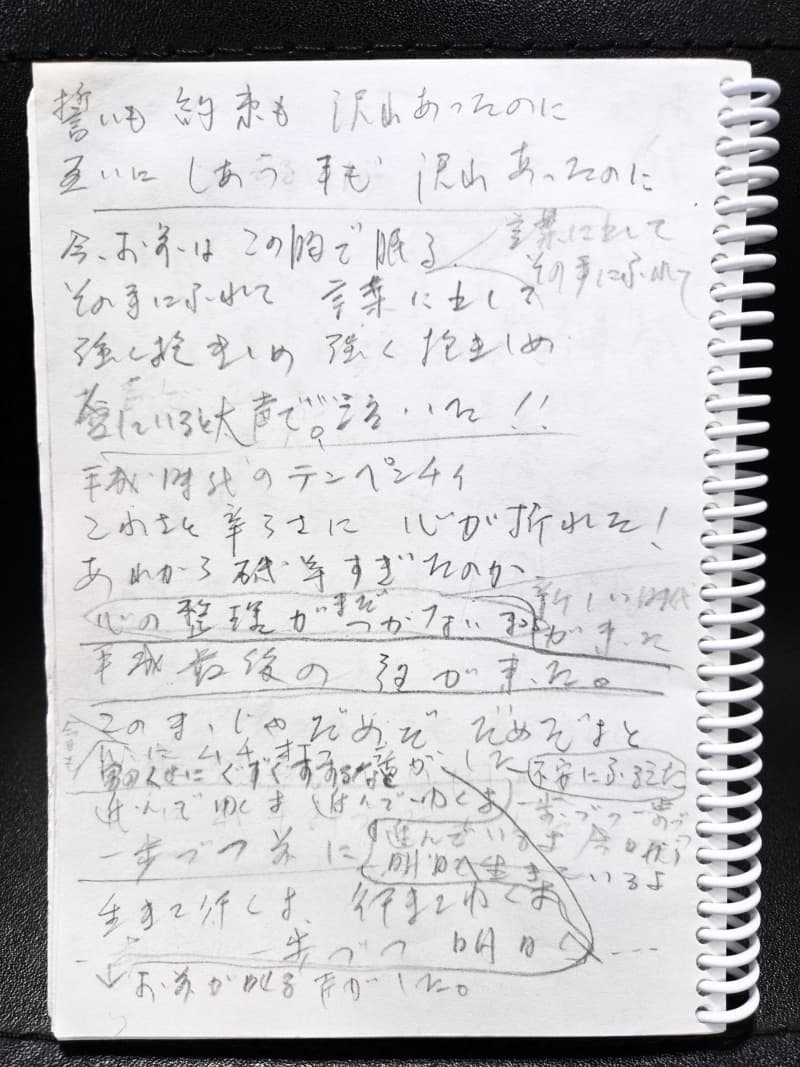 誓いも 約束も 沢山あったのに
互いに しあう 事も 沢山あったのに
今、お前は この胸で眠る
言葉に出して
その手にふれて
その手にふれて 言葉に出して
強く抱きしめ 強く抱きしめ
大声で 言いた!!
平成時代のテンペンチイ
辛ろさに 心が折れた!
あれから 等すぎたのか
心の整理が まだ つかない
新しい時代
が来た
平成最後の 夏が来た。
このまゝじゃ だめだ だめだよと
ムチ した
男のくせに ぐずぐずするな 不安にふるえた
進んでゆくよ 進んでゆくよ 一歩づつ 一歩づつ
一歩づつ 前に
進んでいるよ 今日
明日 生きているよ
生きて行くよ、
一歩づつ 明日へ
お前が 声がした。